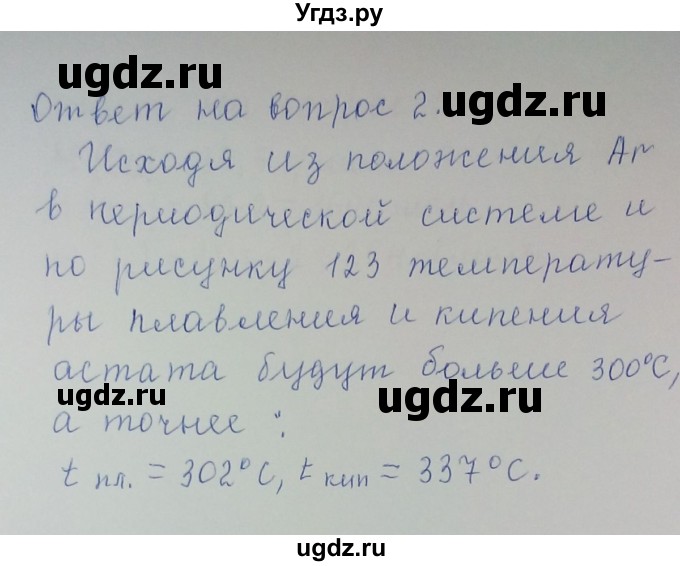 Угдз.ру
ugdz.ru
Ответ на вопрос 2.
ugdz.ru
Исходя из положения Ar
в периодической системе и
по рисунку 123 температу-
ры плавления и кипения
астата будут больше 300°C,
ugdz.ru
ugdz.ru
а точнее :
t пл. = 302°C, t кип = 337°C.
ugdz.ru